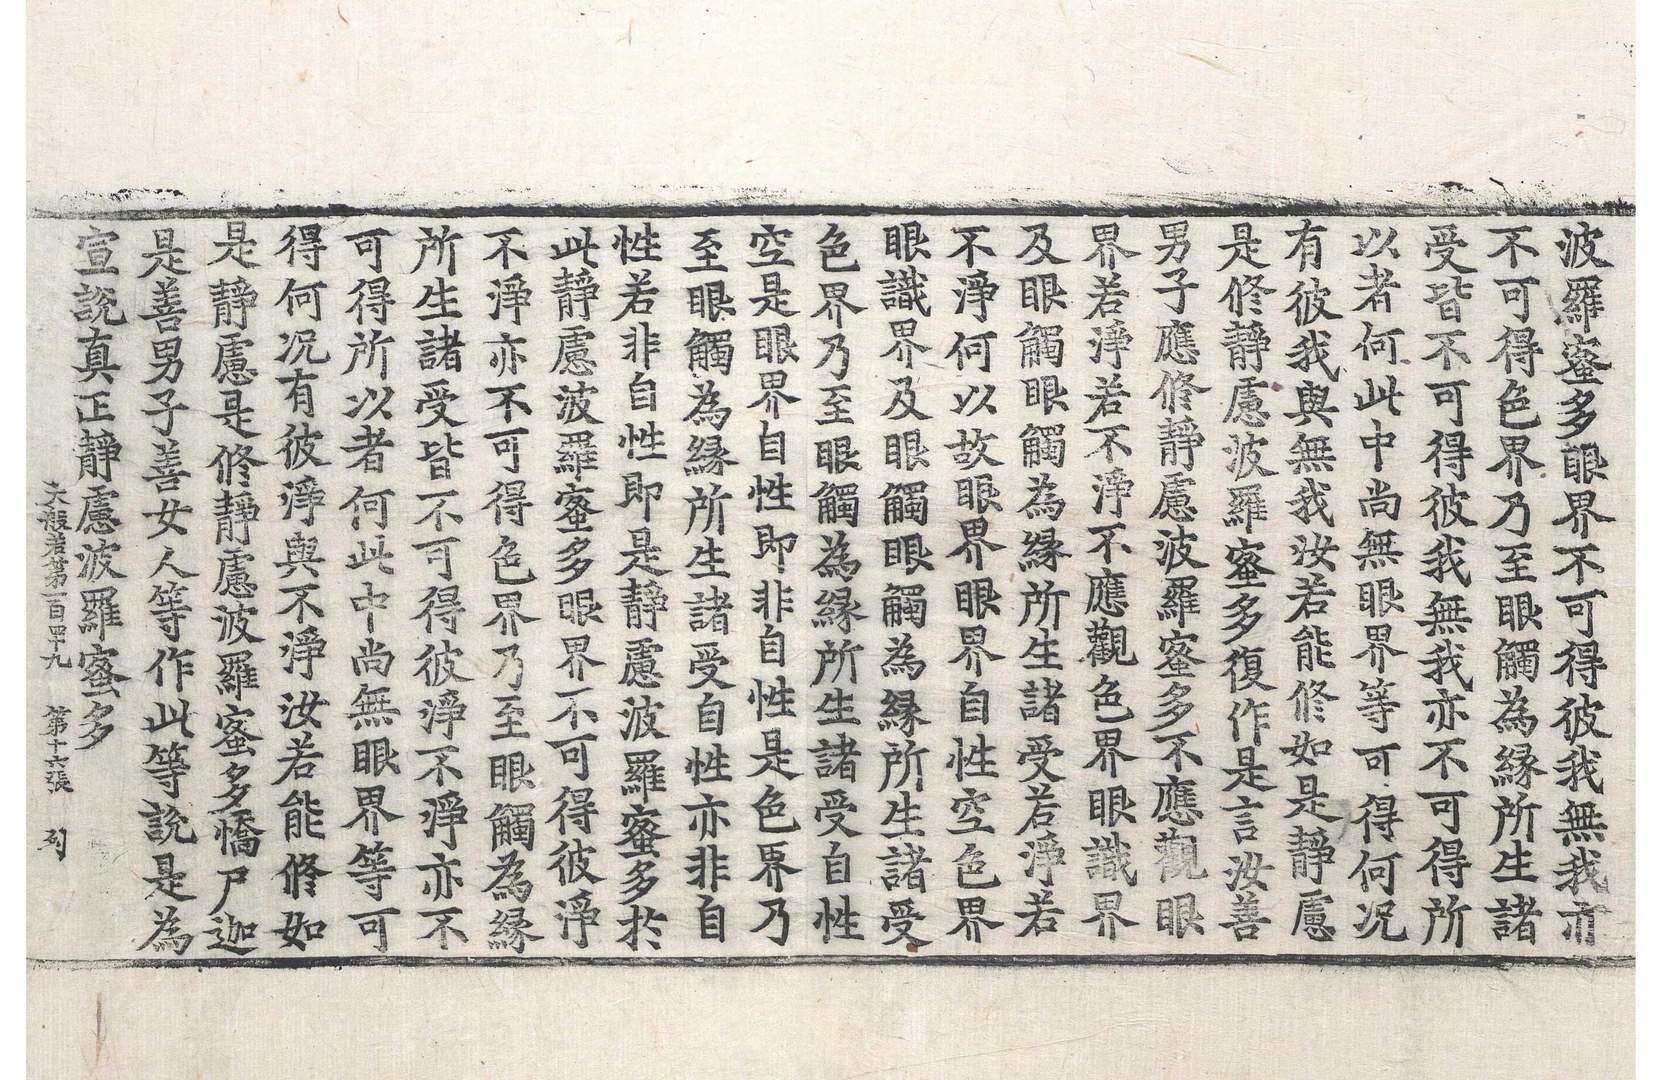 波羅蜜多眼界不可得彼我無我亦
不可得色界乃至眼觸為緣所生諸
受皆不可得彼我無我亦不可得所
以者何此中尚無眼界等可得何况
有彼我與無我汝若能修如是靜慮
是修靜慮波羅蜜多復作是言汝善
男子應修靜慮波羅蜜多不應觀眼
界若淨若不淨不應觀色界眼識界
及眼觸眼觸為緣所生諸受若淨若
不淨何以故眼界眼界自性空色界
眼識界及眼觸眼觸為緣所生諸受
色界乃至眼觸為緣所生諸受自性
空是眼界自性即非自性是色界乃
至眼觸為緣所生諸受自性亦非自
性若非自性即是靜慮波羅蜜多於
此靜慮波羅蜜多眼界不可得彼淨
不淨亦不可得色界乃至眼觸為緣
所生諸受皆不可得彼淨不淨亦不
可得所以者何此中尚無眼界等可
得何况有彼淨與不淨汝若能修如
是靜慮是修靜慮波羅蜜多憍尸迦
是善男子善女人等作此等說是為
宣說真正靜慮波羅蜜多
大般若第一百四十九 第十六張 列